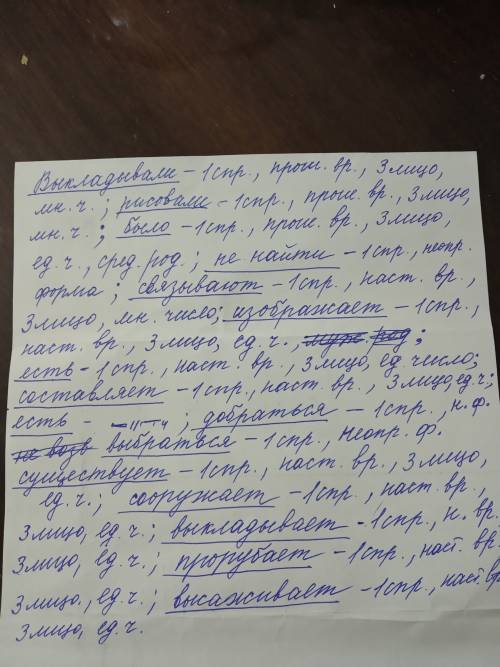 Выкладывали – 1спр., прош. вр., 3лицо,
мн. ч.; рисовали – 1спр., прош. вр., 3лицо,
мн. ч.; было – 1спр., прош. вр., 3лицо,
ед. ч., сред. род.; не найти – 1спр., неопр.
форма; связывают – 1спр., наст. вр.,
3лицо, мн. число; изображает – 1спр.,
наст. вр., 3лицо, ед. ч.,
есть – 1спр., наст. вр., 3лицо, ед число;
составляет – 1спр., наст. вр., 3лицо, ед. ч.;
есть – –"–"– ; добраться – 1спр., н. ф.
выбраться – 1спр., неопр. ф.
существует – 1спр., наст. вр., 3лицо,
ед. ч.; сооружает – 1спр., наст. вр.,
3лицо, ед. ч.; выкладывает – 1спр., н. вр.
3лицо, ед. ч.; прорубает – 1спр., наст. вр.
3лицо., ед. ч.; высаживает – 1спр., наст. вр.
3лицо, ед. ч.